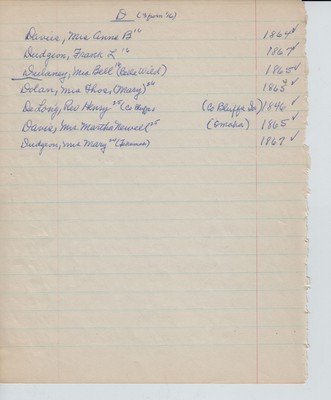 D (from '16)
Davis, Mrs Anna B '16 1864 ✓
Dudgeon, Frank L '16 1867 ✓
Delaney, Mrs Bell '19 (Belle Wild) 1865 ✓
Dolan, Mrs Thos, (Mary) '26 1863 ✓
De Long, Rev Henry '25 (Co Bluffs (Co Bluffs Ia) 1846 ✓
Davis, Mrs Martha Newell '25 (Omaha) 1865 ✓
Dudgeon, Mrs Mary 1867 ✓